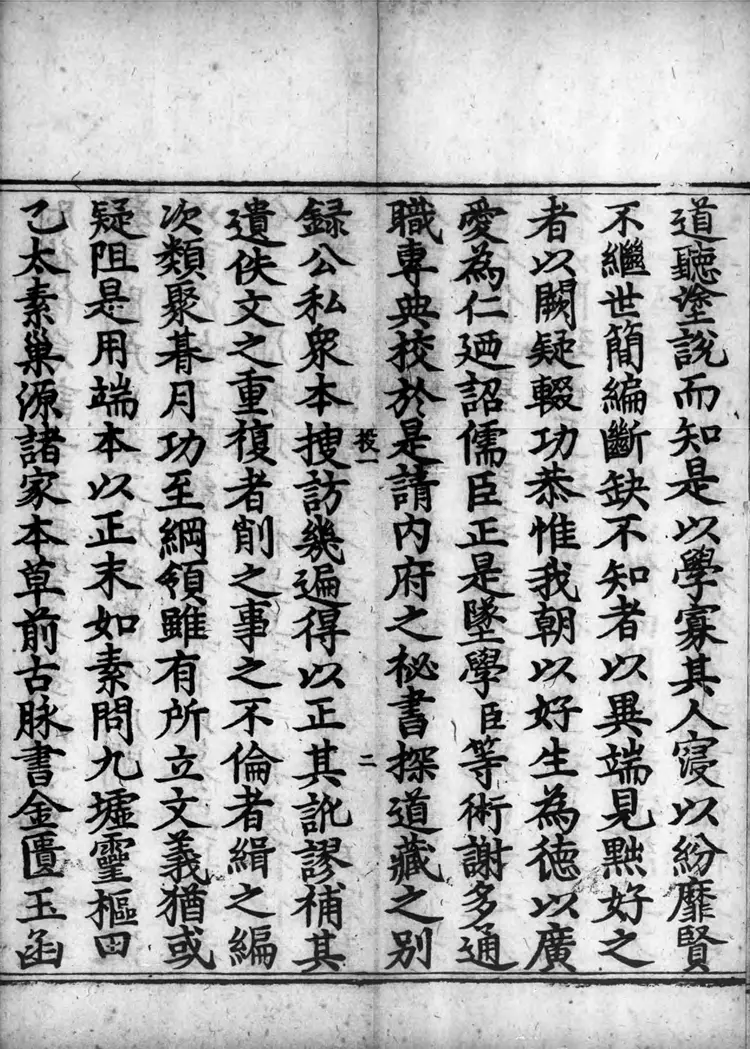 道聽塗說而知是以學寡其人寖以紛靡賢
不繼世簡編斷缺不知者以異端見黜好之
者以闕疑輟功恭惟我朝以好生為德以廣
愛為仁廼詔儒臣正是墜學臣等術謝多通
職專典校於是請內府之秘書探道藏之別
校一
二
録公私衆本搜訪幾遍得以正其訛謬補其
遺佚文之重復者削之事之不倫者緝之編
次類聚朞月功至綱領雖有所立文義猶或
疑阻是用端本以正末如素問九墟靈樞甲
乙太素巢源諸家本草前古脉書金匱玉函